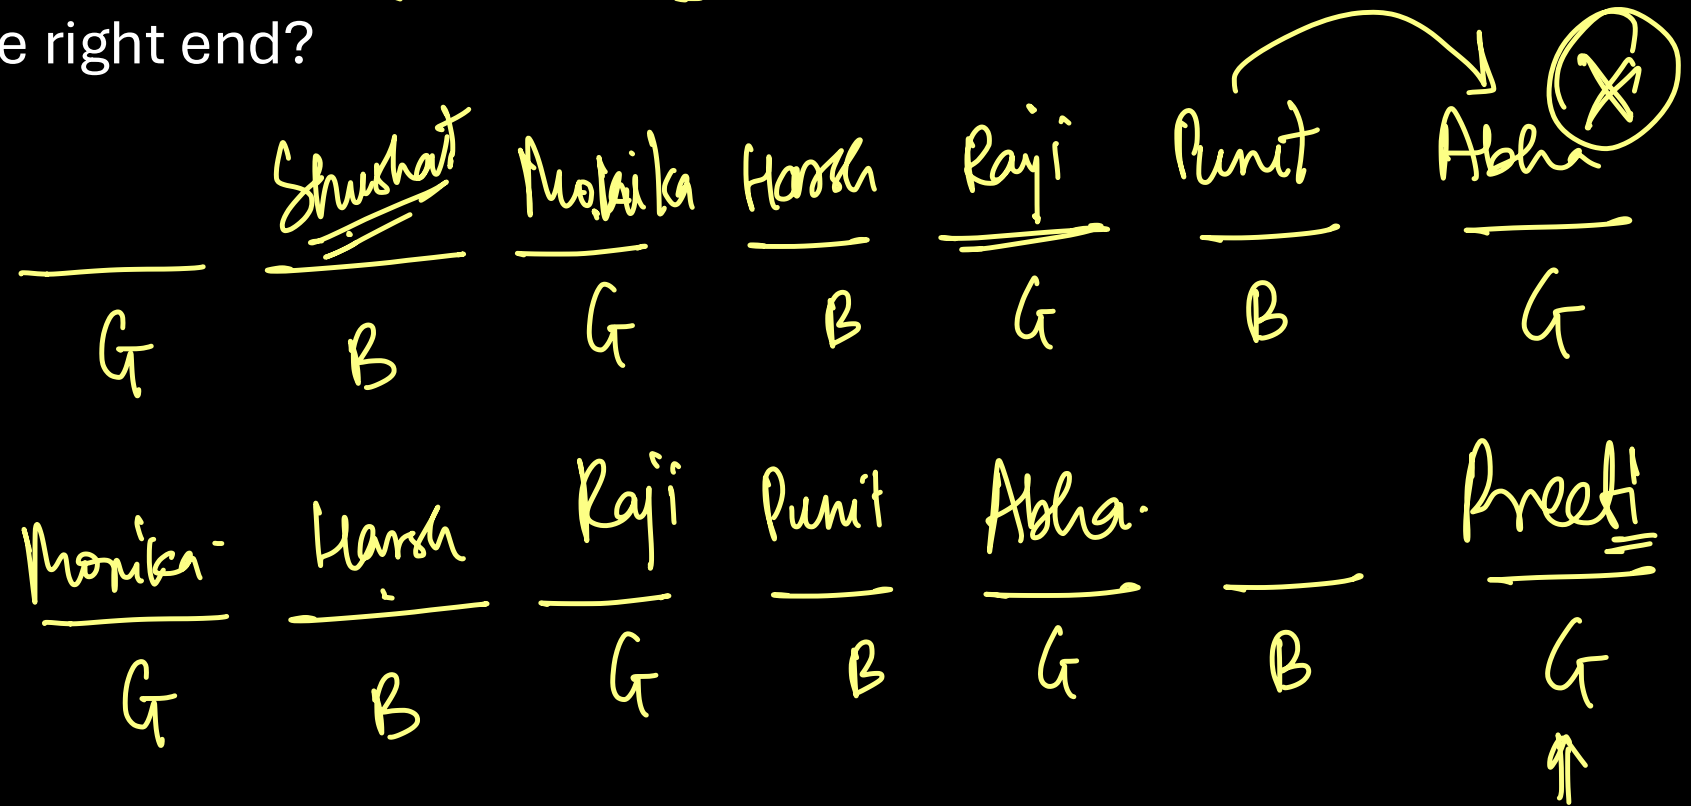 e right end?
Shushat Monika Harsh Raji Punit Abha X
G B G B G B G
Monika Harsh Raji Punit Abha. Preeti
G B G B G B G